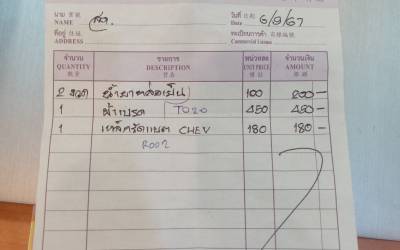 นาม 寶號 สด. วันที่ 日期 6/9/67
NAME Date
ที่อยู่ 住址 ทะเบียนการค้า 商業註冊
ADDRESS Commercial License
จำนวน รายการ หน่วยละ จำนวนเงิน
QUANTITY DESCRIPTION UNIT PRICE AMOUNT
數量 貨品 單價 銀額
2 ขวด น้ำยาหล่อเย็น 100 200 –
1 ผ้าเบรค TO20 450 450 –
1 เหล็กรัดแบต CHEV 180 180 –
R002